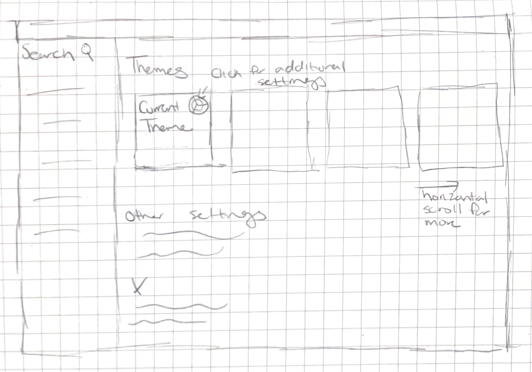 Search
Themes
Click for additional
settings
Current
Theme
horizantal
scroll for
more
other settings
X